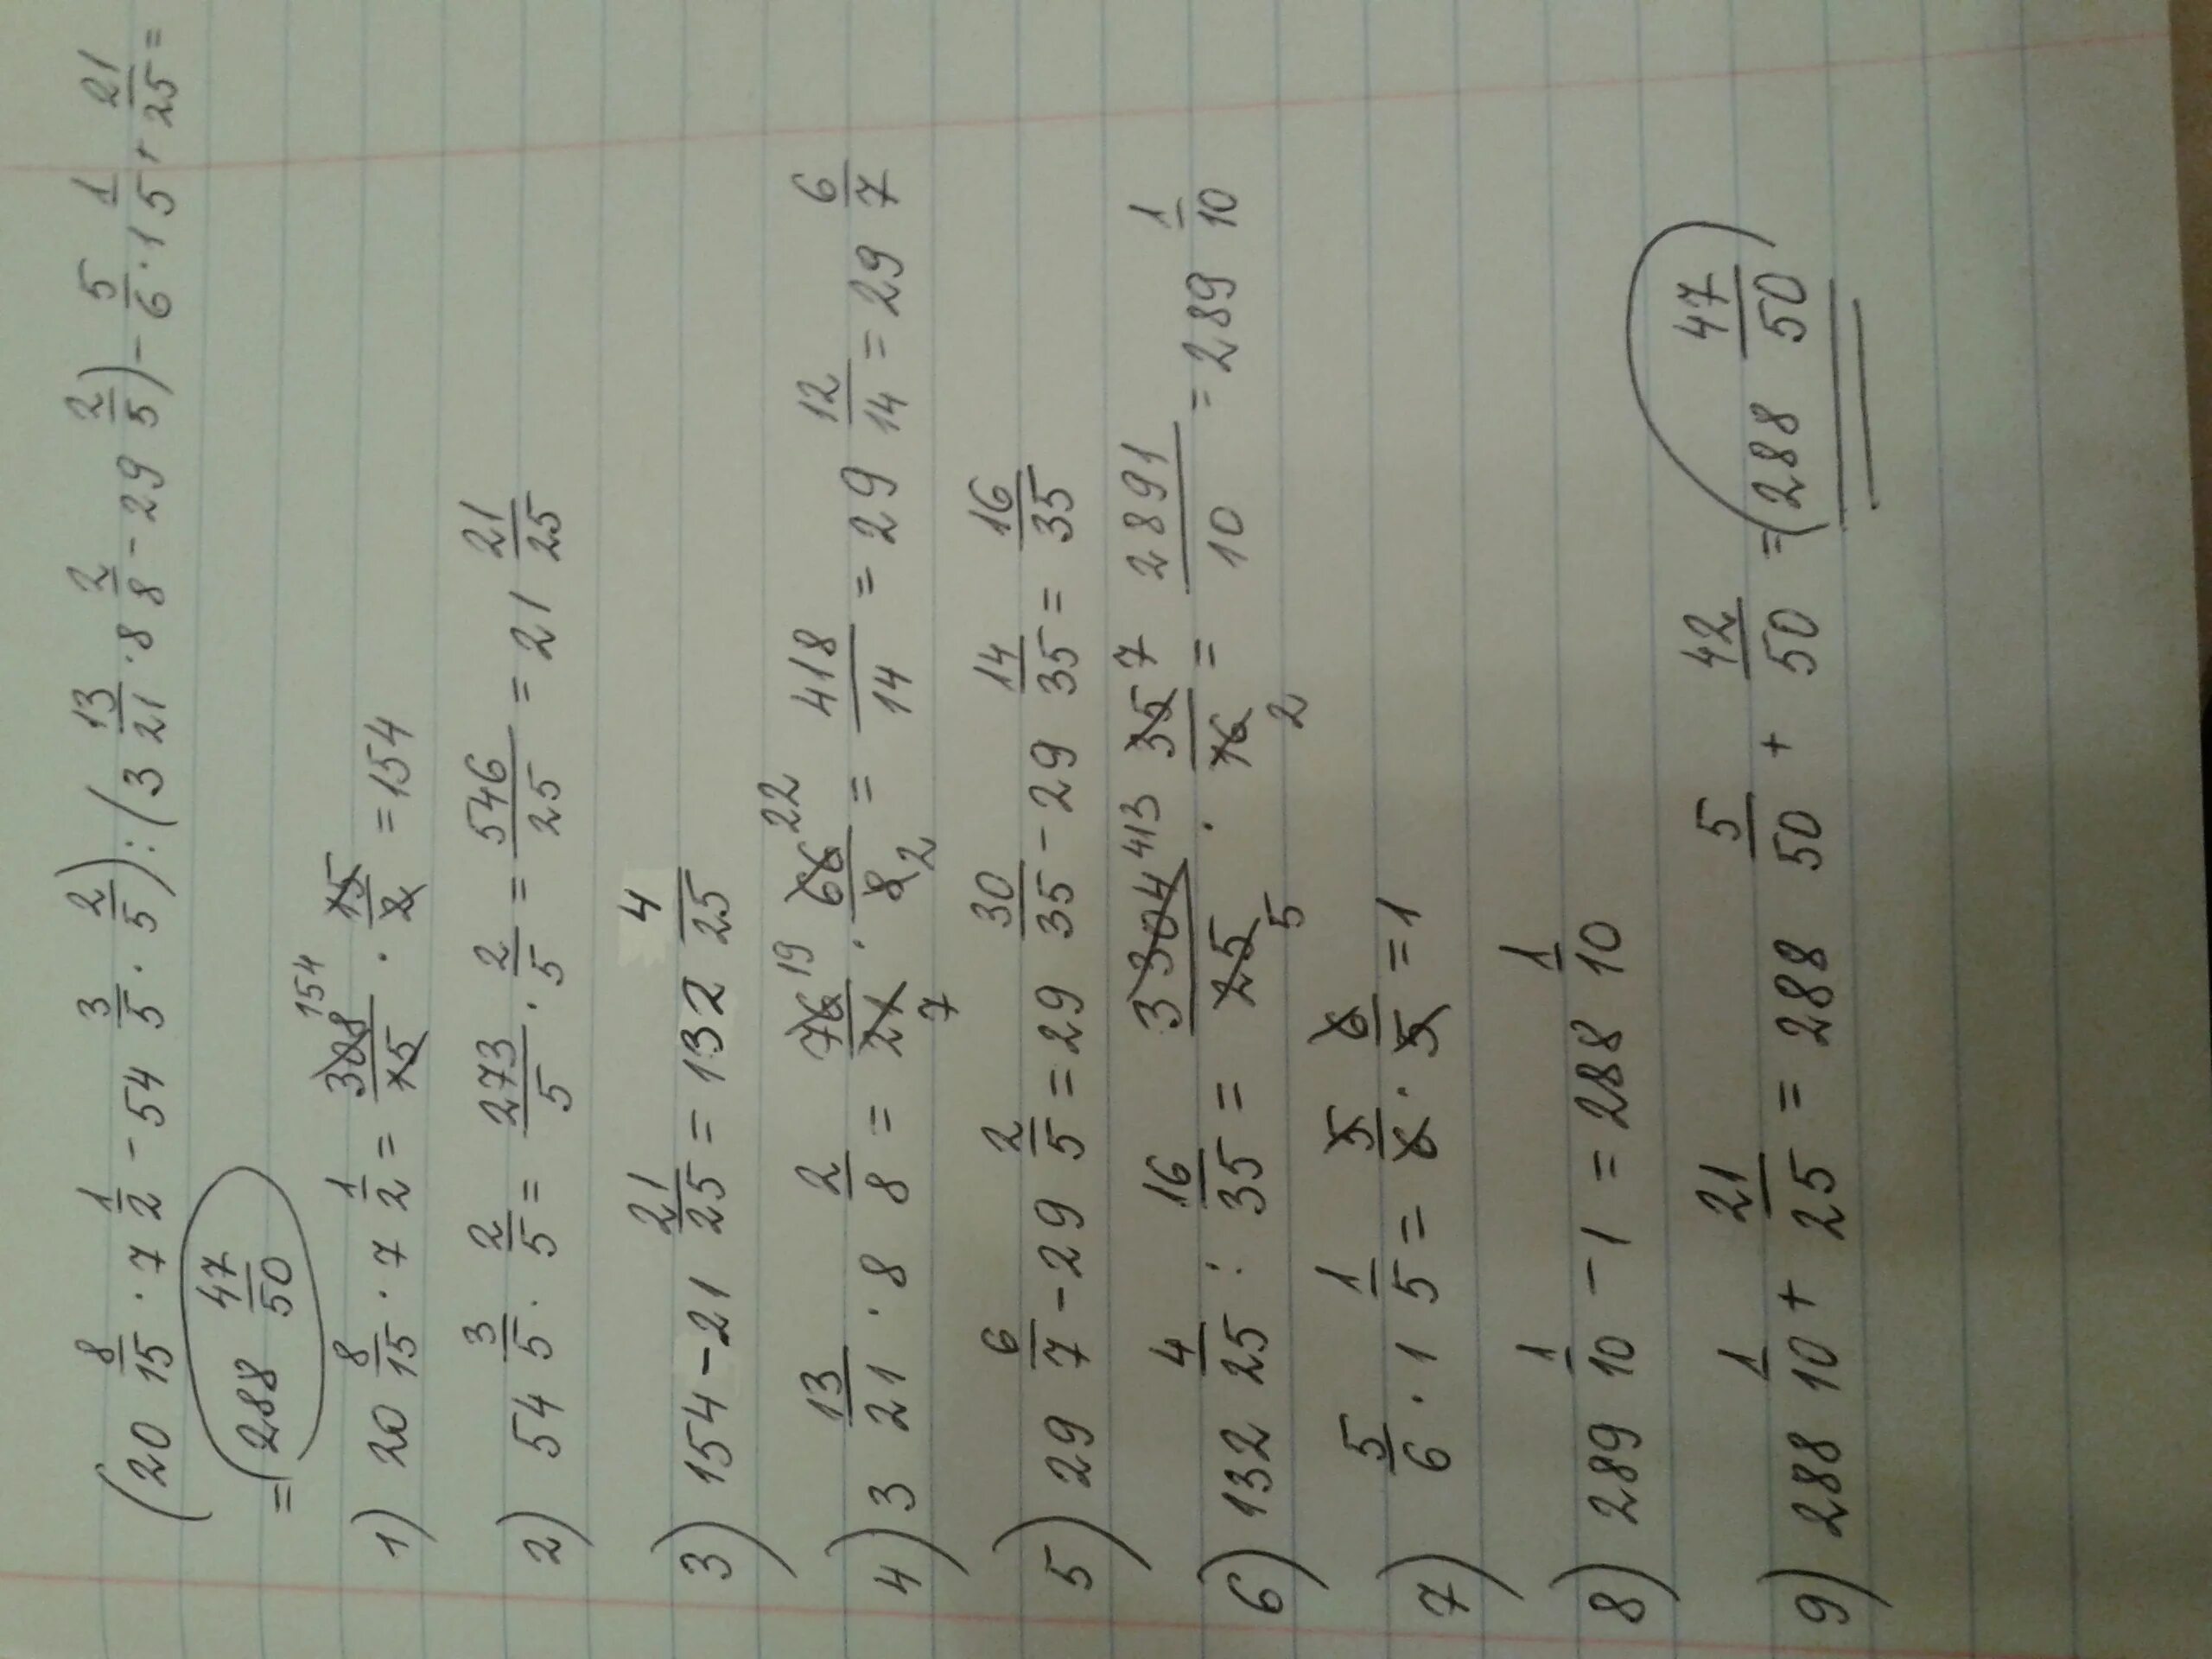 (20 8/15 · 7 1/2 - 54 3/5 · 2/5) : (3 13/21 · 8 2/8 - 29 2/5) - 5/6 · 1 1/5 + 21/25 =
= (288 47/50)
1) 20 8/15 · 7 1/2 = 308/15 154 · 15/2 = 154
2) 54 3/5 · 2/5 = 273/5 · 2/5 = 546/25 = 21 21/25
3) 154 - 21 21/25 = 132 4/25
4) 3 13/21 · 8 2/8 = 76/21 19 7 · 66/8 22 2 = 418/14 = 29 12/14 = 29 6/7
5) 29 6/7 - 29 2/5 = 29 30/35 - 29 14/35 = 16/35
6) 132 4/25 : 16/35 = 3304/25 413 5 · 35/16 7 2 = 2891/10 = 289 1/10
7) 5/6 · 1 1/5 = 5/6 · 6/5 = 1
8) 289 1/10 - 1 = 288 1/10
9) 288 1/10 + 21/25 = 288 5/50 + 42/50 = (288 47/50)